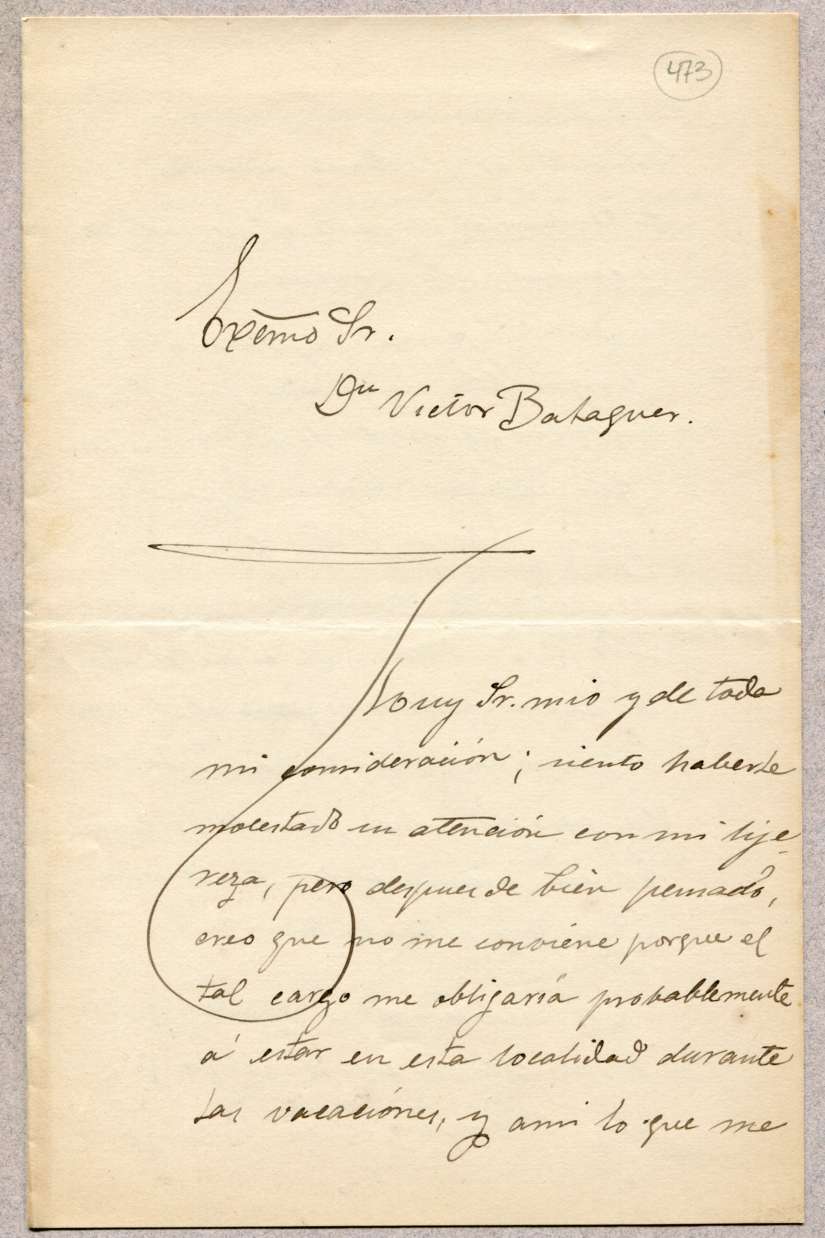 473
Excmo Sr.
Dn Victor Balaguer.
Muy Sr. mio y de toda
mi consideración; siento haberle
molestado su atención con mi lije-
reza, pero despues de bien pensado,
creo que no me conviene porque el
tal cargo me obligaria probablemente
á estar en esta localidad durante
las vacaciónes, y ami lo que me